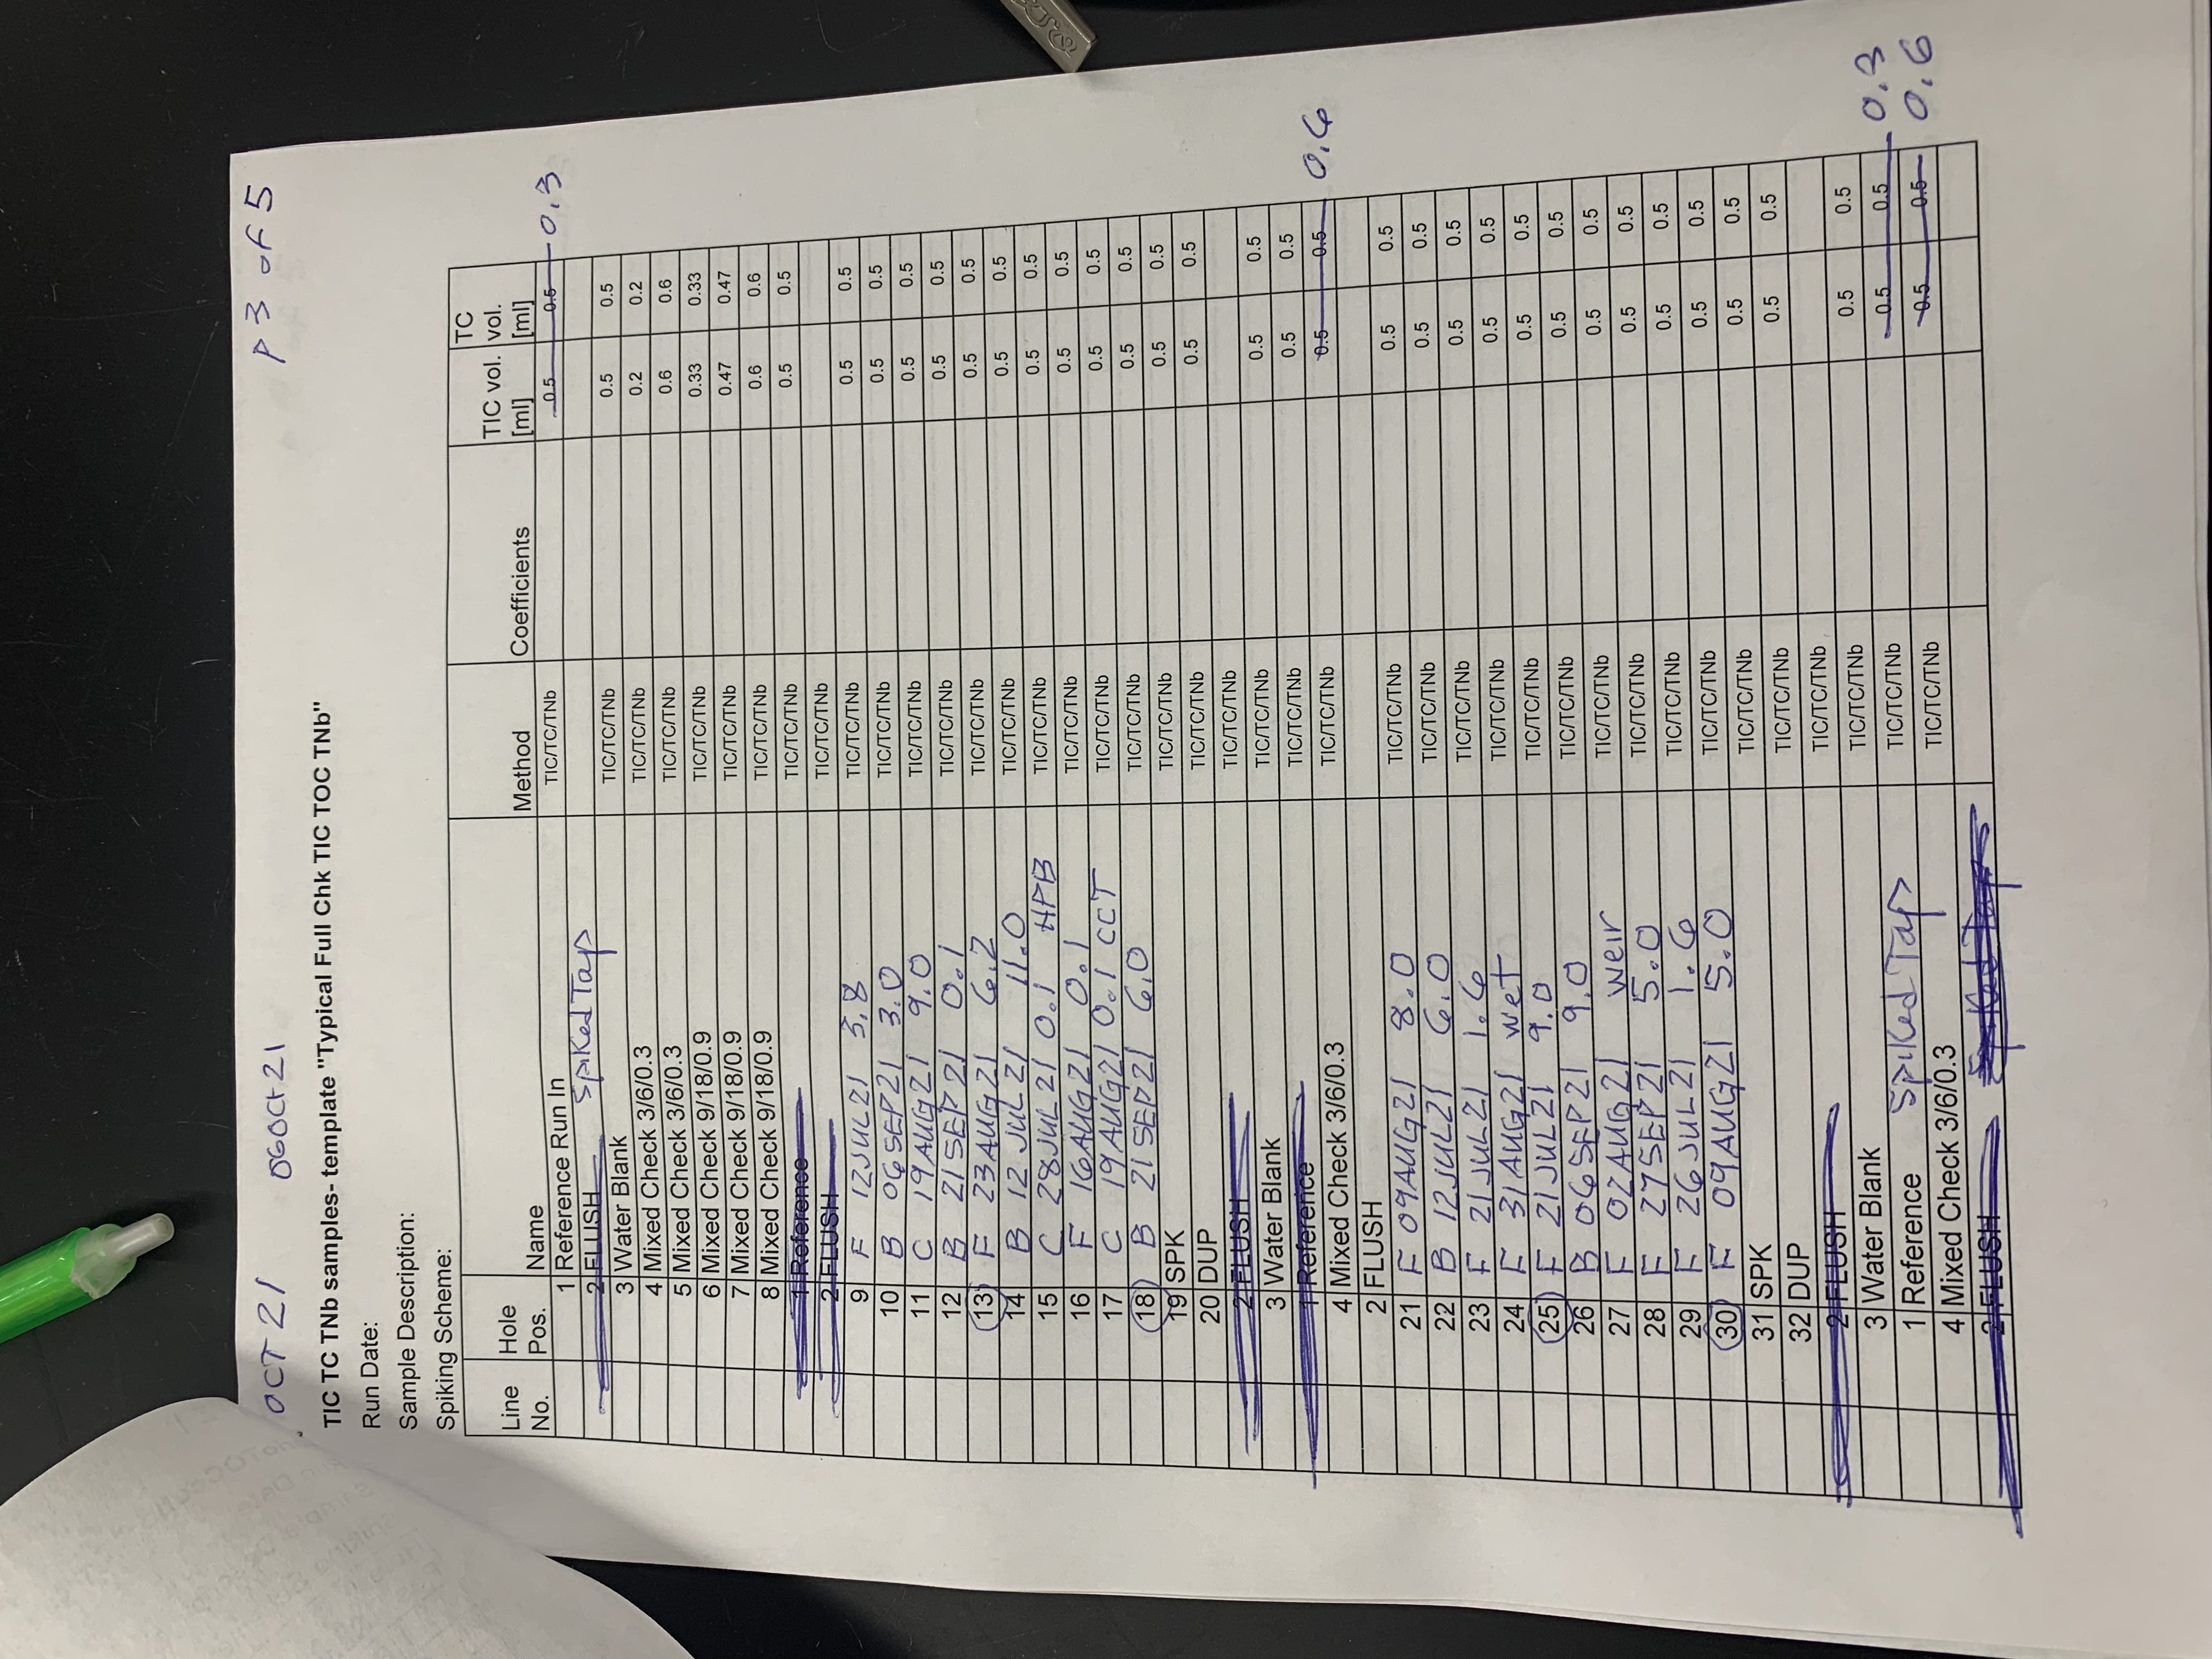 OCT 21 06Oct21 p 3 of 5
TIC TC TNb samples- template "Typical Full Chk TIC TOC TNb"
Run Date:
Sample Description:
Spiking Scheme:
Line No. Hole Pos. Name Method Coefficients TIC vol. [ml] TC vol. [ml]
1 Reference Run In TIC/TC/TNb 0.5 0.5 0.3
2 FLUSH Spiked Tap
3 Water Blank TIC/TC/TNb 0.5 0.5
4 Mixed Check 3/6/0.3 TIC/TC/TNb 0.2 0.2
5 Mixed Check 3/6/0.3 TIC/TC/TNb 0.6 0.6
6 Mixed Check 9/18/0.9 TIC/TC/TNb 0.33 0.33
7 Mixed Check 9/18/0.9 TIC/TC/TNb 0.47 0.47
8 Mixed Check 9/18/0.9 TIC/TC/TNb 0.6 0.6
1 Reference TIC/TC/TNb 0.5 0.5
2 FLUSH TIC/TC/TNb
9 F 12JUL21 3.8 TIC/TC/TNb 0.5 0.5
10 B 06SEP21 3.0 TIC/TC/TNb 0.5 0.5
11 C 19AUG21 9.0 TIC/TC/TNb 0.5 0.5
12 B 21SEP21 0.1 TIC/TC/TNb 0.5 0.5
13 F 23AUG21 6.2 TIC/TC/TNb 0.5 0.5
14 B 12JUL21 11.0 TIC/TC/TNb 0.5 0.5
15 C 28JUL21 0.1 HPB TIC/TC/TNb 0.5 0.5
16 F 16AUG21 0.1 TIC/TC/TNb 0.5 0.5
17 C 19AUG21 0.1 CCT TIC/TC/TNb 0.5 0.5
18 B 21SEP21 6.0 TIC/TC/TNb 0.5 0.5
19 SPK TIC/TC/TNb 0.5 0.5
20 DUP TIC/TC/TNb 0.5 0.5
2 FLUSH TIC/TC/TNb
3 Water Blank TIC/TC/TNb 0.5 0.5
1 Reference TIC/TC/TNb 0.5 0.5
4 Mixed Check 3/6/0.3 TIC/TC/TNb 0.5 0.5 0.6
2 FLUSH
21 F 09AUG21 8.0 TIC/TC/TNb 0.5 0.5
22 B 12JUL21 6.0 TIC/TC/TNb 0.5 0.5
23 F 21JUL21 1.6 TIC/TC/TNb 0.5 0.5
24 F 31AUG21 wet TIC/TC/TNb 0.5 0.5
25 F 21JUL21 9.0 TIC/TC/TNb 0.5 0.5
26 B 06SEP21 9.0 TIC/TC/TNb 0.5 0.5
27 F 02AUG21 weir TIC/TC/TNb 0.5 0.5
28 F 27SEP21 5.0 TIC/TC/TNb 0.5 0.5
29 F 26JUL21 1.6 TIC/TC/TNb 0.5 0.5
30 F 09AUG21 5.0 TIC/TC/TNb 0.5 0.5
31 SPK TIC/TC/TNb 0.5 0.5
32 DUP TIC/TC/TNb 0.5 0.5
2 FLUSH TIC/TC/TNb
3 Water Blank TIC/TC/TNb 0.5 0.5
1 Reference Spiked Tap TIC/TC/TNb 0.5 0.5 0.3
4 Mixed Check 3/6/0.3 TIC/TC/TNb 0.5 0.5 0.6
2 FLUSH Spiked Tap